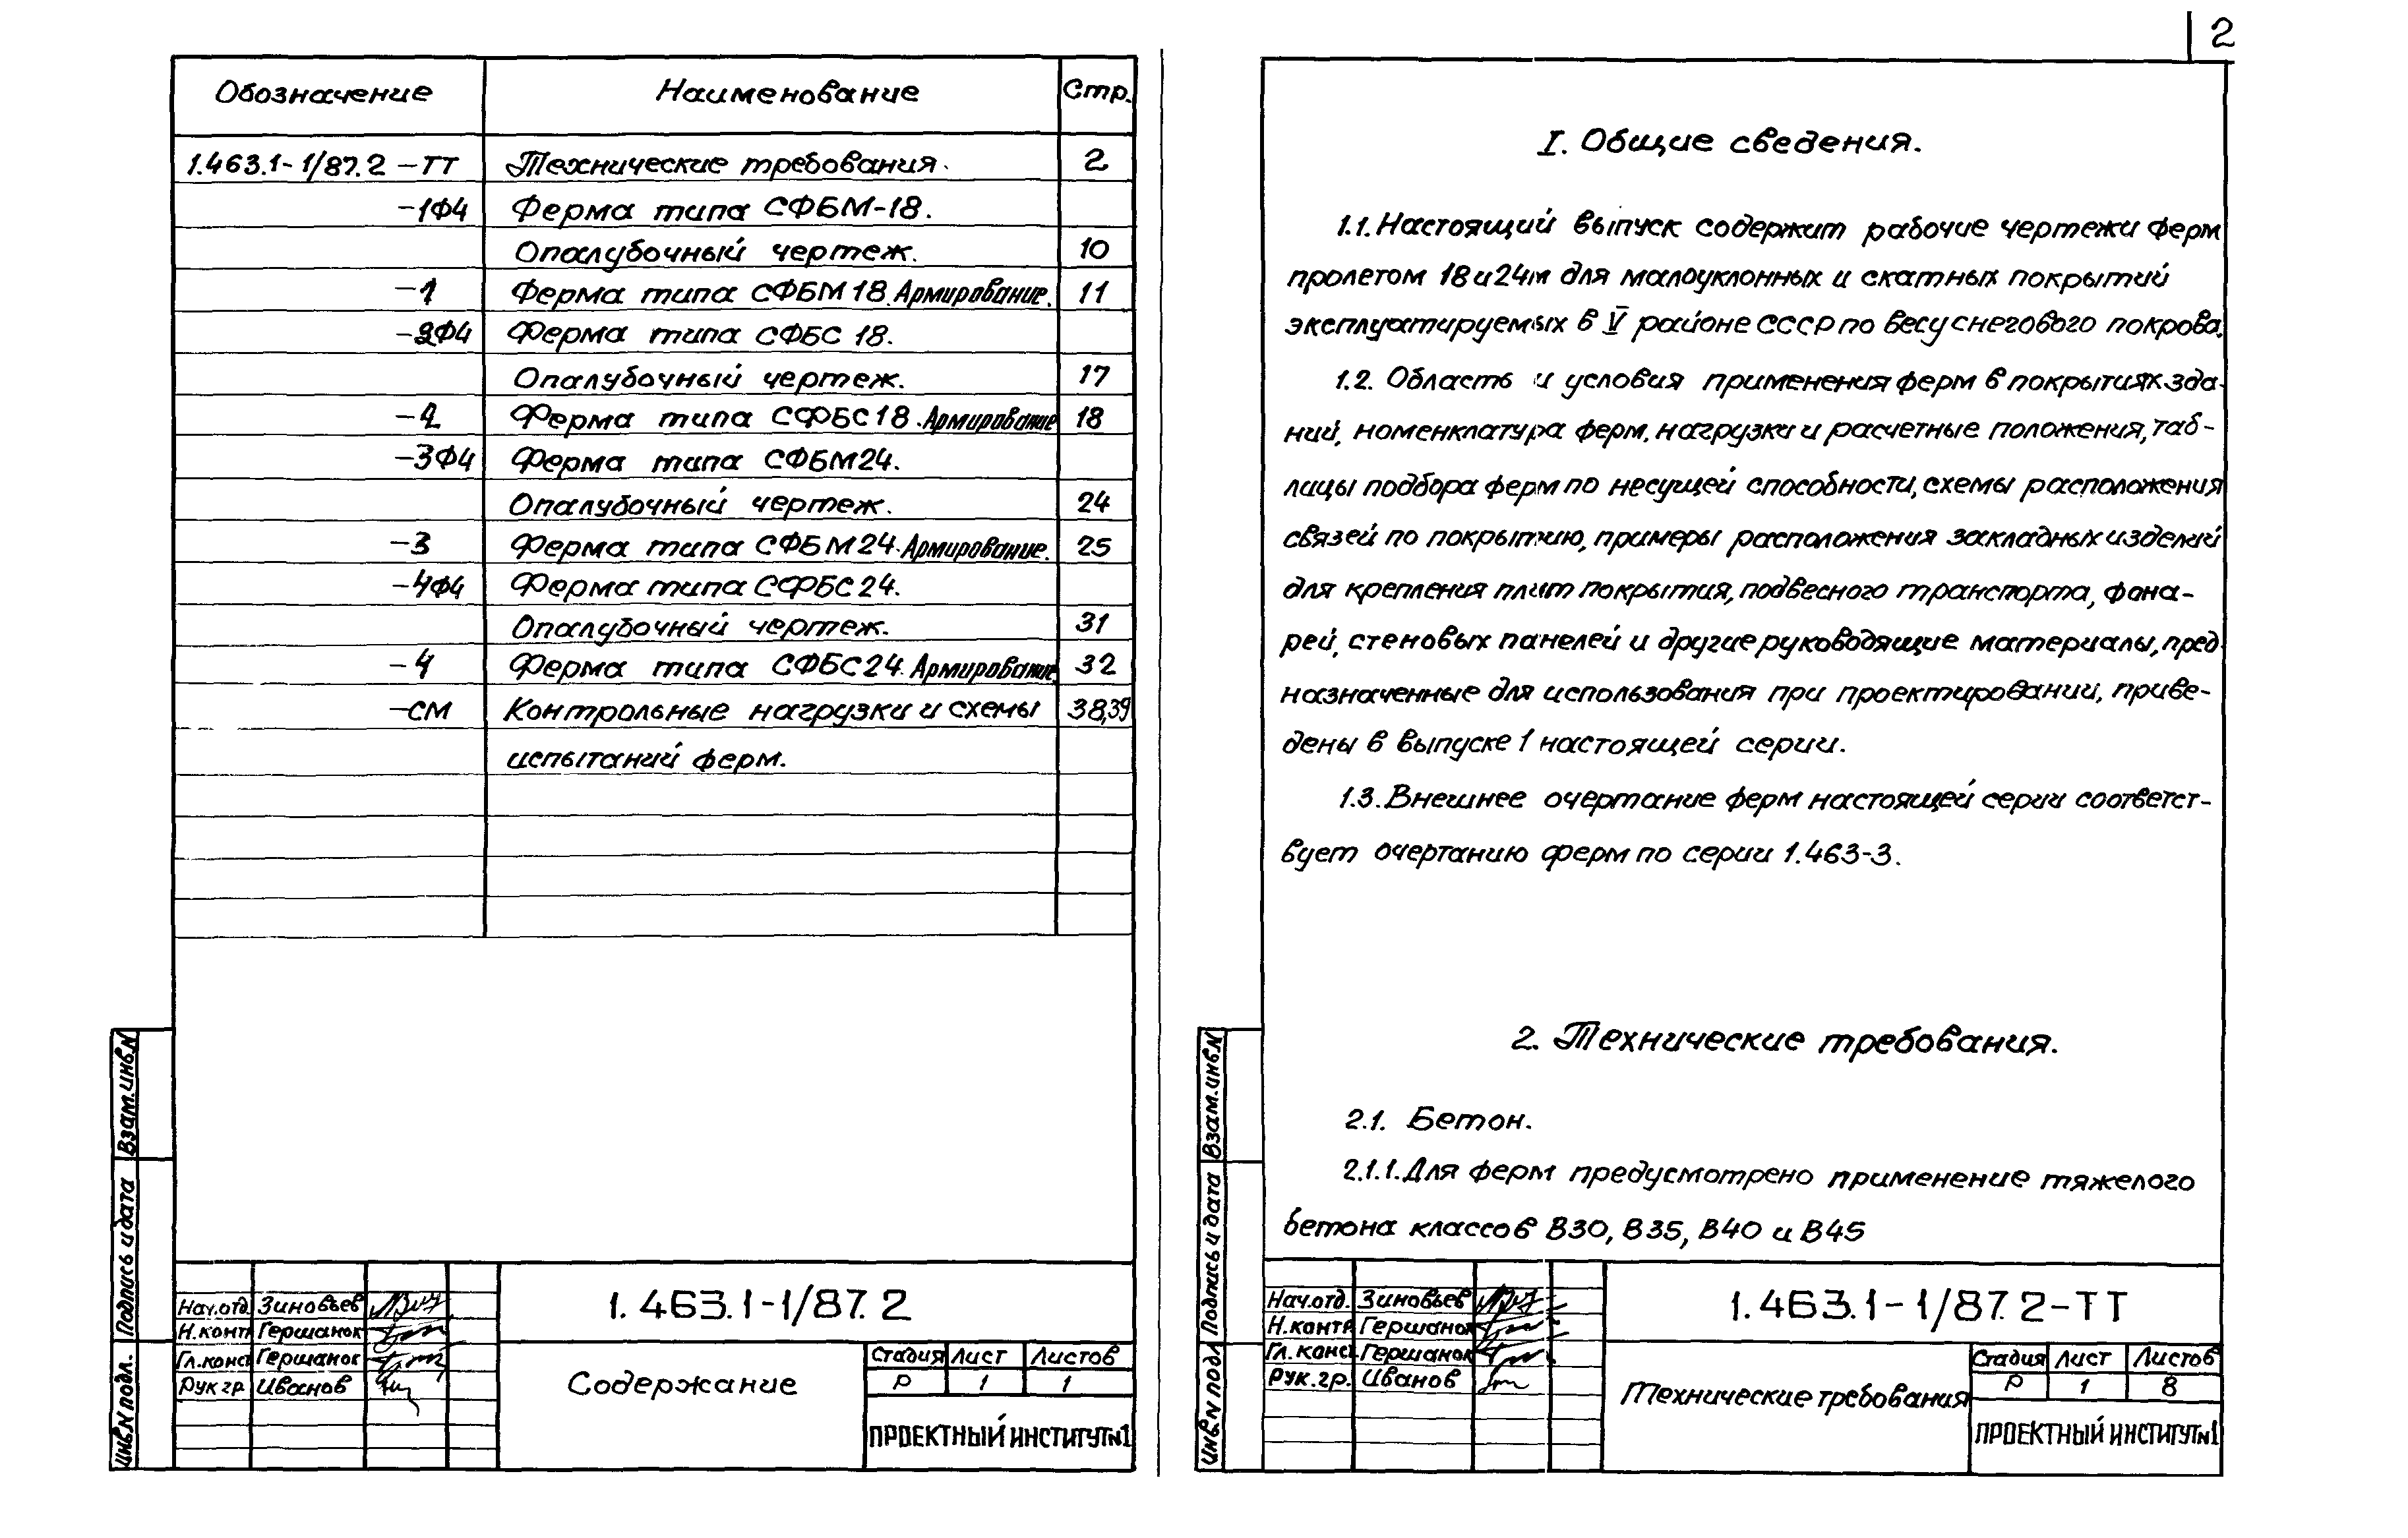 2
Обозначение Наименование Стр.
1.463.1-1/87.2 -ТТ Технические требования. 2
-1Ф4 Ферма типа СФБМ-18.
Опалубочный чертеж. 10
-1 Ферма типа СФБМ 18. Армирование. 11
-2Ф4 Ферма типа СФБС 18.
Опалубочный чертеж. 17
-2 Ферма типа СФБС 18. Армирование 18
-3Ф4 Ферма типа СФБМ 24.
Опалубочный чертеж. 24
-3 Ферма типа СФБМ 24. Армирование. 25
-4Ф4 Ферма типа СФБС 24.
Опалубочный чертеж. 31
-4 Ферма типа СФБС 24. Армирование 32
-СМ Контрольные нагрузки и схемы 38,39
испытаний ферм.
Взам.инв.N
Подпись и дата
Инв.N подл.
Нач.отд. Зиновьев
Н.конт Гершанок
Гл.конст Гершанок
Рук гр. Иванов
1.463.1-1/87.2
Содержание
Стадия Лист Листов
Р 1 1
ПРОЕКТНЫЙ ИНСТИТУТ N1
I. Общие сведения.
1.1. Настоящий выпуск содержит рабочие чертежи ферм
пролетом 18 и 24м для малоуклонных и скатных покрытий
эксплуатируемых в V районе СССР по весу снегового покрова.
1.2. Область и условия применения ферм в покрытиях зда-
ний, номенклатура ферм, нагрузки и расчетные положения, таб-
лицы подбора ферм по несущей способности, схемы расположения
связей по покрытию, примеры расположения закладных изделий
для крепления плит покрытия, подвесного транспорта, фона-
рей, стеновых панелей и другие руководящие материалы, пред-
назначенные для использования при проектировании, приве-
дены в выпуске 1 настоящей серии.
1.3. Внешнее очертание ферм настоящей серии соответст-
вует очертанию ферм по серии 1.463-3.
2. Технические требования.
2.1. Бетон.
2.1.1. Для ферм предусмотрено применение тяжелого
бетона классов В30, В35, В40 и В45
Взам.инв.N
Подпись и дата
Инв.N подл
Нач.отд. Зиновьев
Н.контр Гершанок
Гл. конст Гершанок
Рук.гр. Иванов
1.463.1-1/87.2-ТТ
Технические требования
Стадия Лист Листов
Р 1 8
ПРОЕКТНЫЙ ИНСТИТУТ N1